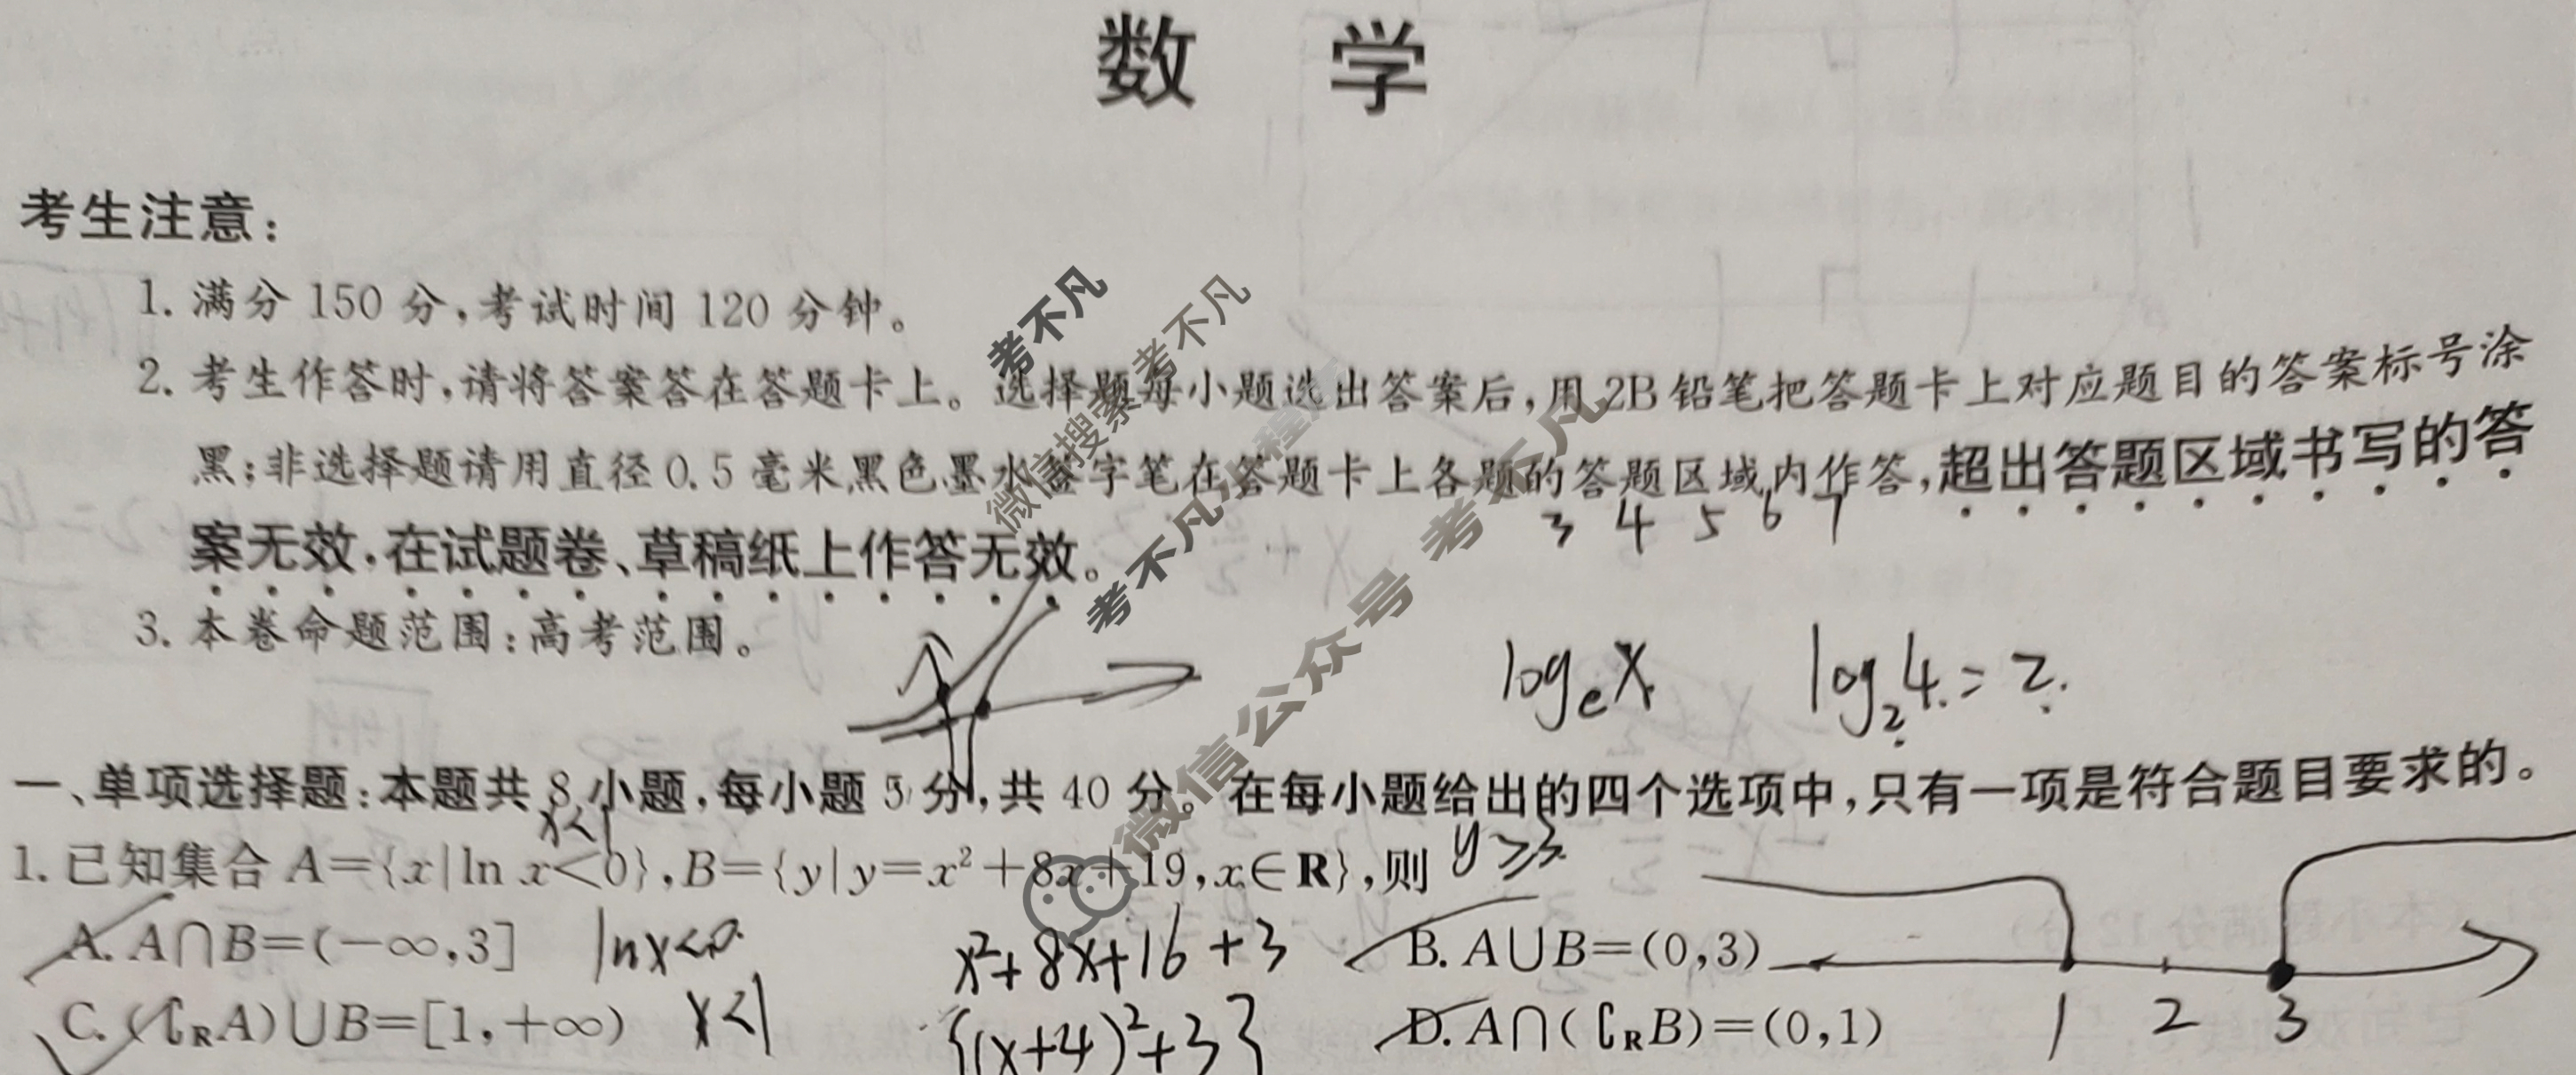 数 学
考生注意:
1. 满分 150 分,考试时间 120 分钟。
2. 考生作答时,请将答案答在答题卡上。选择题每小题选出答案后,用 2B 铅笔把答题卡上对应题目的答案标号涂
黑;非选择题请用直径 0.5 毫米黑色墨水签字笔在答题卡上各题的答题区域内作答,超出答题区域书写的答
3 4 5 6 7
案无效,在试题卷、草稿纸上作答无效。
3. 本卷命题范围:高考范围。
logₑx log₂4=2.
一、单项选择题:本题共 8 小题,每小题 5 分,共 40 分。在每小题给出的四个选项中,只有一项是符合题目要求的。
x<1
1. 已知集合 A={x|ln x<0},B={y|y=x²+8x+19,x∈R},则 y≥3
A. A∩B=(-∞,3] lnx<0 x²+8x+16+3 B. A∪B=(0,3)
C. (∁RA)∪B=[1,+∞) x<1 {(x+4)²+3} D. A∩(∁RB)=(0,1) 1 2 3
考不凡
考不凡
微信搜索
考不凡小程序
微信公众号 考不凡